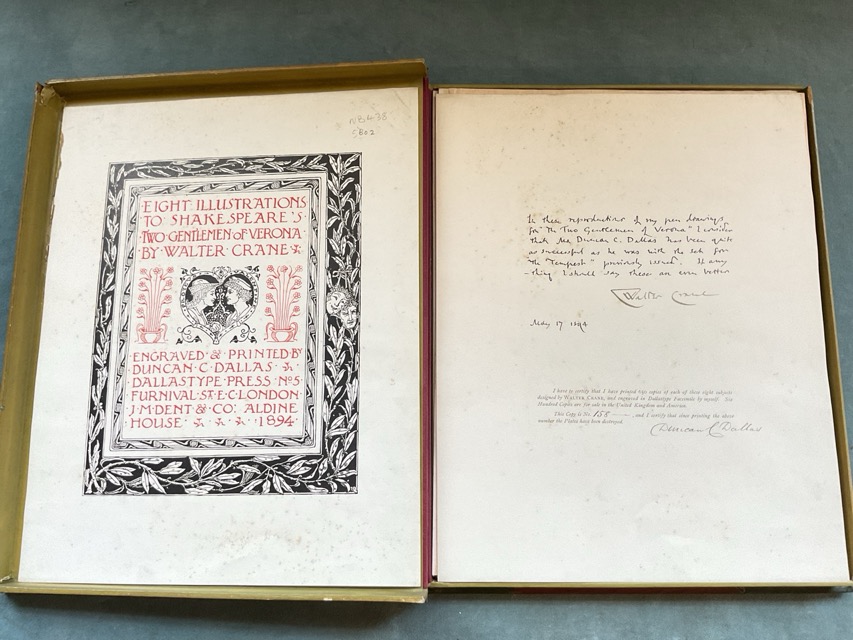 EIGHT ILLUSTRATIONS
TO SHAKESPEARE'S
TWO GENTLEMEN OF VERONA
BY WALTER CRANE
ENGRAVED & PRINTED BY
DUNCAN C DALLAS
DALLASTYPE PRESS Nº5
FURNIVAL ST E C LONDON
J M DENT & CO: ALDINE
HOUSE 1894
In these reproductions of my pen drawings
for "The Two Gentlemen of Verona" I consider
that Mr Duncan C. Dallas has been quite
as successful as he was with the set for
the "Tempest" previously issued. If any
-thing I should say these are even better
Walter Crane
May 17. 1894
I have to certify that I have printed 650 copies of each of these eight subjects
designed by WALTER CRANE, and engraved in Dallastype Facsimile by myself. Six
Hundred Copies are for sale in the United Kingdom and America.
This Copy is No. 158, and I certify that since printing the above
number the Plates have been destroyed.
Duncan C Dallas